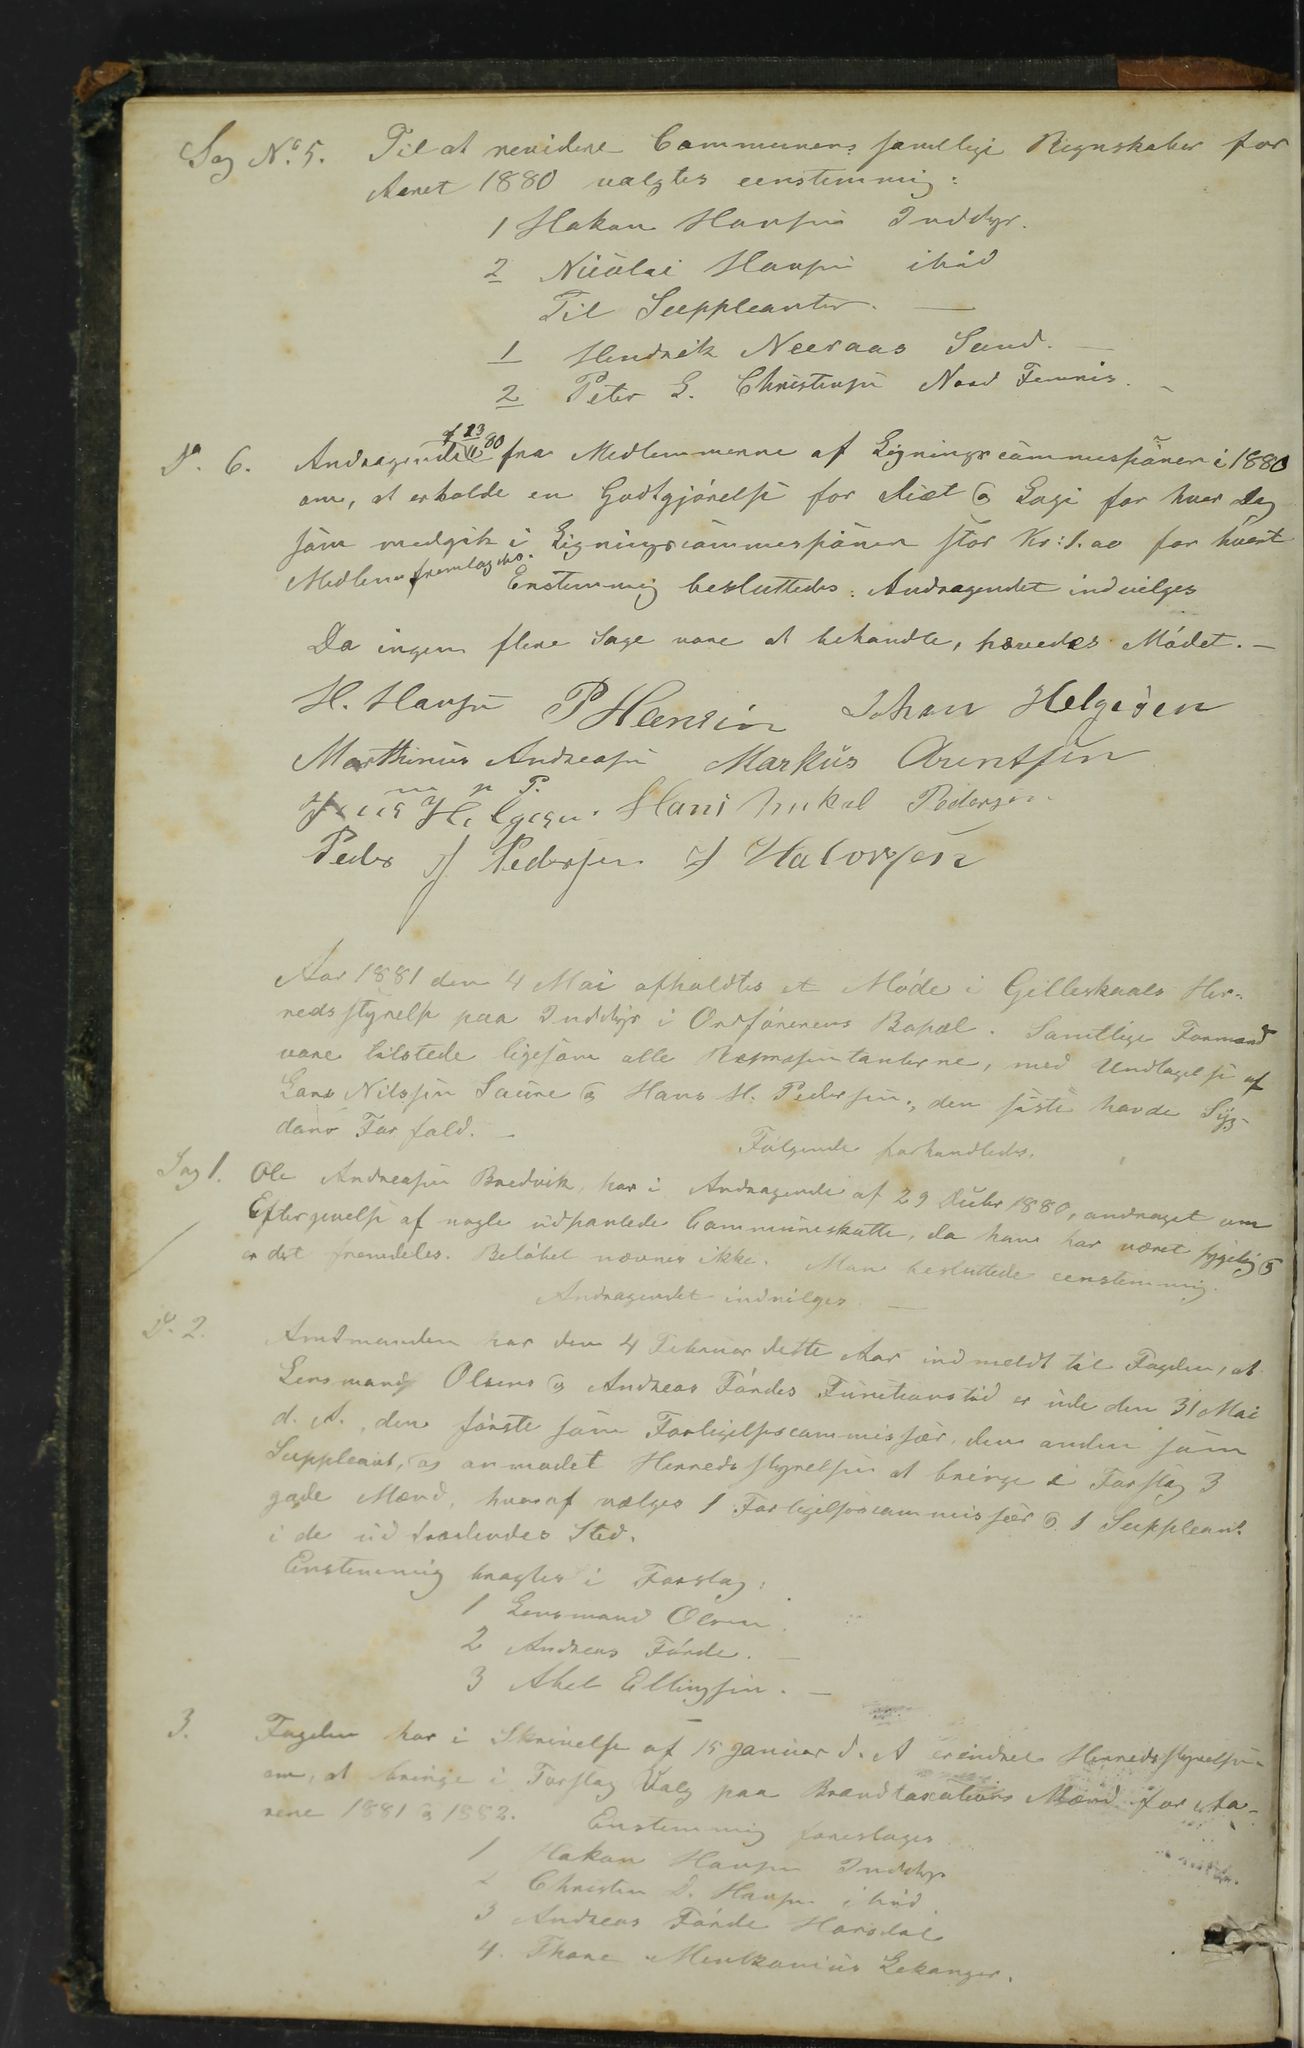 Sag No. 5. Til at revidere Communens samtlige Regnskaber for
Aaret 1880 valgtes eenstemmig:
1 Hakon Hansen Inddyr.
2 Nicolai Hansen ibid
Til Suppleanter. —
1 Hendrik Neeraas Sund. —
2 Peter G. Christensen Nord Fennis. -
Do. 6. Andragende af 23/6 80 fra Medlemmerne af Ligningscommissionen i 1880
om, at erholde en Godtgjörelse for Diæt og Logi for hver Dag
som medgik i Ligningscommissionen stor Kr: 1.00 for hvert
Medlem fremlagdes. Enstemmig besluttedes: Andragendet indvilges
Da ingen flere Sage vare at behandle, hævedes Mödet. —
H. Hansen P Hansen Johan Helgesen
Marthinus Andreasen Markus Arentsen
Helgesen. m p P. Hans Mikal Pedersen.
Peder J Pedersen J Halorsen
Aar 1881 den 4 Mai afholdtes et Möde i Gilleskaals Her-
redsstyrelse paa Inddyr i Ordförerens Bopæl. Samtlige Formænd
vare tilstede ligesom alle Repræsentanterne, med Undtagelse af
Lars Nilssen Saure og Hans M. Pedersen, den siste havde Syg-
doms Forfald. — Følgende forhandledes.
Sag 1. Ole Andreasen Bredvik, har i Andragende af 29 Decbr 1880, andraget om
Eftergivelse af nogle udpantede Communeskatte, da han har været sygelig og
er det fremdeles. Belöbet nævnes ikke. Man besluttede eenstemmig.
Andragendet indvilges. —
Do. 2. Amtmanden har den 4 Februar dette Aar indmeldt til Fogden, at
Lensmand Olsens og Andreas Fördes Functionstid er ude den 31 Mai
d. A., den förste som Forligelsescommissær, den anden som
Suppleant, og anmodet Herredsstyrelsen at bringe i Forslag 3
gode Mænd, hvoraf vælges 1 Forligelsescommissær og 1 Suppleant
i de udtrædendes Sted.
Enstemmig bragtes i Forslag:
1 Lensmand Olsen.
2 Andreas Förde. —
3 Abel Ellingsen. —
3. Fogden har i Skrivelse af 15 Januar d. A erindret Herredsstyrelsen
om, at bringe i Forslag Valg paa Brandtaxations Mænd for Aa-
rene 1881 og 1882. Enstemmig foreslages
1 Hakon Hansen Inddyr
2 Christen D. Hansen ibid.
3 Andreas Förde Horsdal
4. Thore Mentzonius Lekanger.